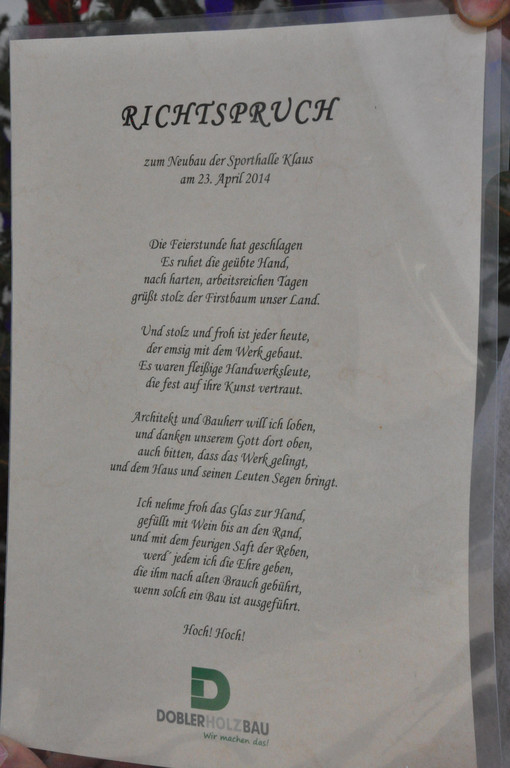 RICHTSPRUCH
zum Neubau der Sporthalle Klaus
am 23. April 2014
Die Feierstunde hat geschlagen
Es ruhet die geübte Hand,
nach harten, arbeitsreichen Tagen
grüßt stolz der Firstbaum unser Land.
Und stolz und froh ist jeder heute,
der emsig mit dem Werk gebaut.
Es waren fleißige Handwerksleute,
die fest auf ihre Kunst vertraut.
Architekt und Bauherr will ich loben,
und danken unserem Gott dort oben,
auch bitten, dass das Werk gelingt,
und dem Haus und seinen Leuten Segen bringt.
Ich nehme froh das Glas zur Hand,
gefüllt mit Wein bis an den Rand,
und mit dem feurigen Saft der Reben,
werd´ jedem ich die Ehre geben,
die ihm nach alten Brauch gebührt,
wenn solch ein Bau ist ausgeführt.
Hoch! Hoch!
DOBLERHOLZBAU
Wir machen das!